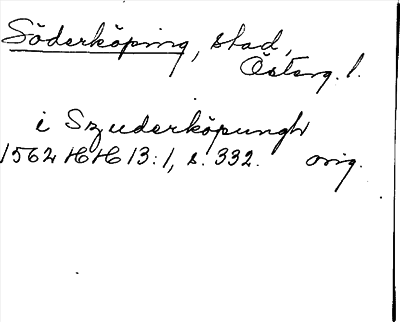 Söderköping, stad,
Österg. l.
i Szuderköpungh
1562 HH 13:1, s. 332. orig.